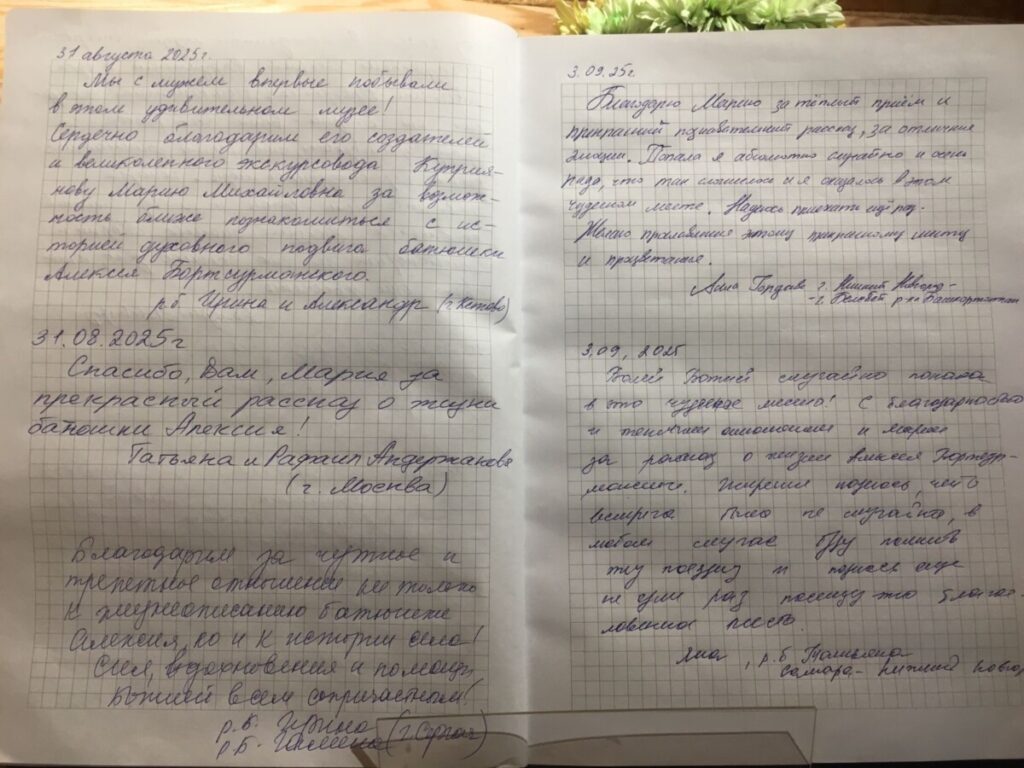 31 августа 2025г.
Мы с мужем впервые побывали
в этом удивительном музее!
Сердечно благодарим его создателей
и великолепного экскурсовода Куприя-
нову Марию Михайловна за возмож-
ность ближе познакомиться с ис-
торией духовного подвига батюшки
Алексия Бортсурманского.
р.б. Ирина и Александр (г.Кстово)
31.08.2025г
Спасибо, Вам, Мария за
прекрасный рассказ о жизни
батюшки Алексия!
Татьяна и Рафаил Андержановы
(г. Москва)
Благодарим за чуткое и
трепетное отношение не только
к жизнеописанию батюшки
Алексия, но и к истории села!
Сил, вдохновения и помощи
Божией всем сопричастным!
р.Б. Ирина (г. Сергач)
р.Б.
3.09.25г.
Благодарю Марию за тёплый приём и
прекрасный познавательный рассказ, за отличные
эмоции. Попала я абсолютно случайно и очень
рада, что так сложилось и я оказалась в этом
чудесном месте. Надеюсь приехать ещё раз.
Желаю процветания этому прекрасному месту
и процветания.
Анна г. Нижний Новгород-
-г. р-ка Башкортостан
3.09, 2025
Волей Божией случайно попала
в это чудесное место! С благодарностью
и теплым и Марии
за рассказ о жизни Алексея Бортсур-
манского. Искренне надеюсь, что
встреча была не случайна, в
любом случае буду помнить
эту поездку и надеюсь еще
не один раз посещу это благос-
ловенное место.
р.Б. Татьяна
Самара - Нижний Новгород